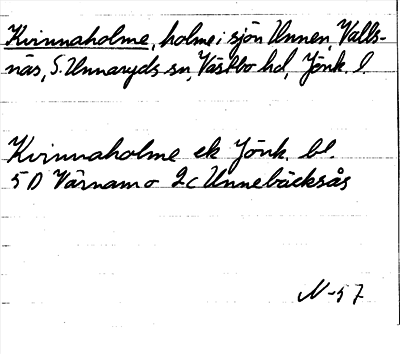 Kvinnaholme, holme i sjön Unnen, Valls-
näs, S. Unnaryds sn, Västbo hd, Jönk. l.
Kvinnaholme ek Jönk. bl.
5D Värnamo 2c Unnebäcksås
N-57